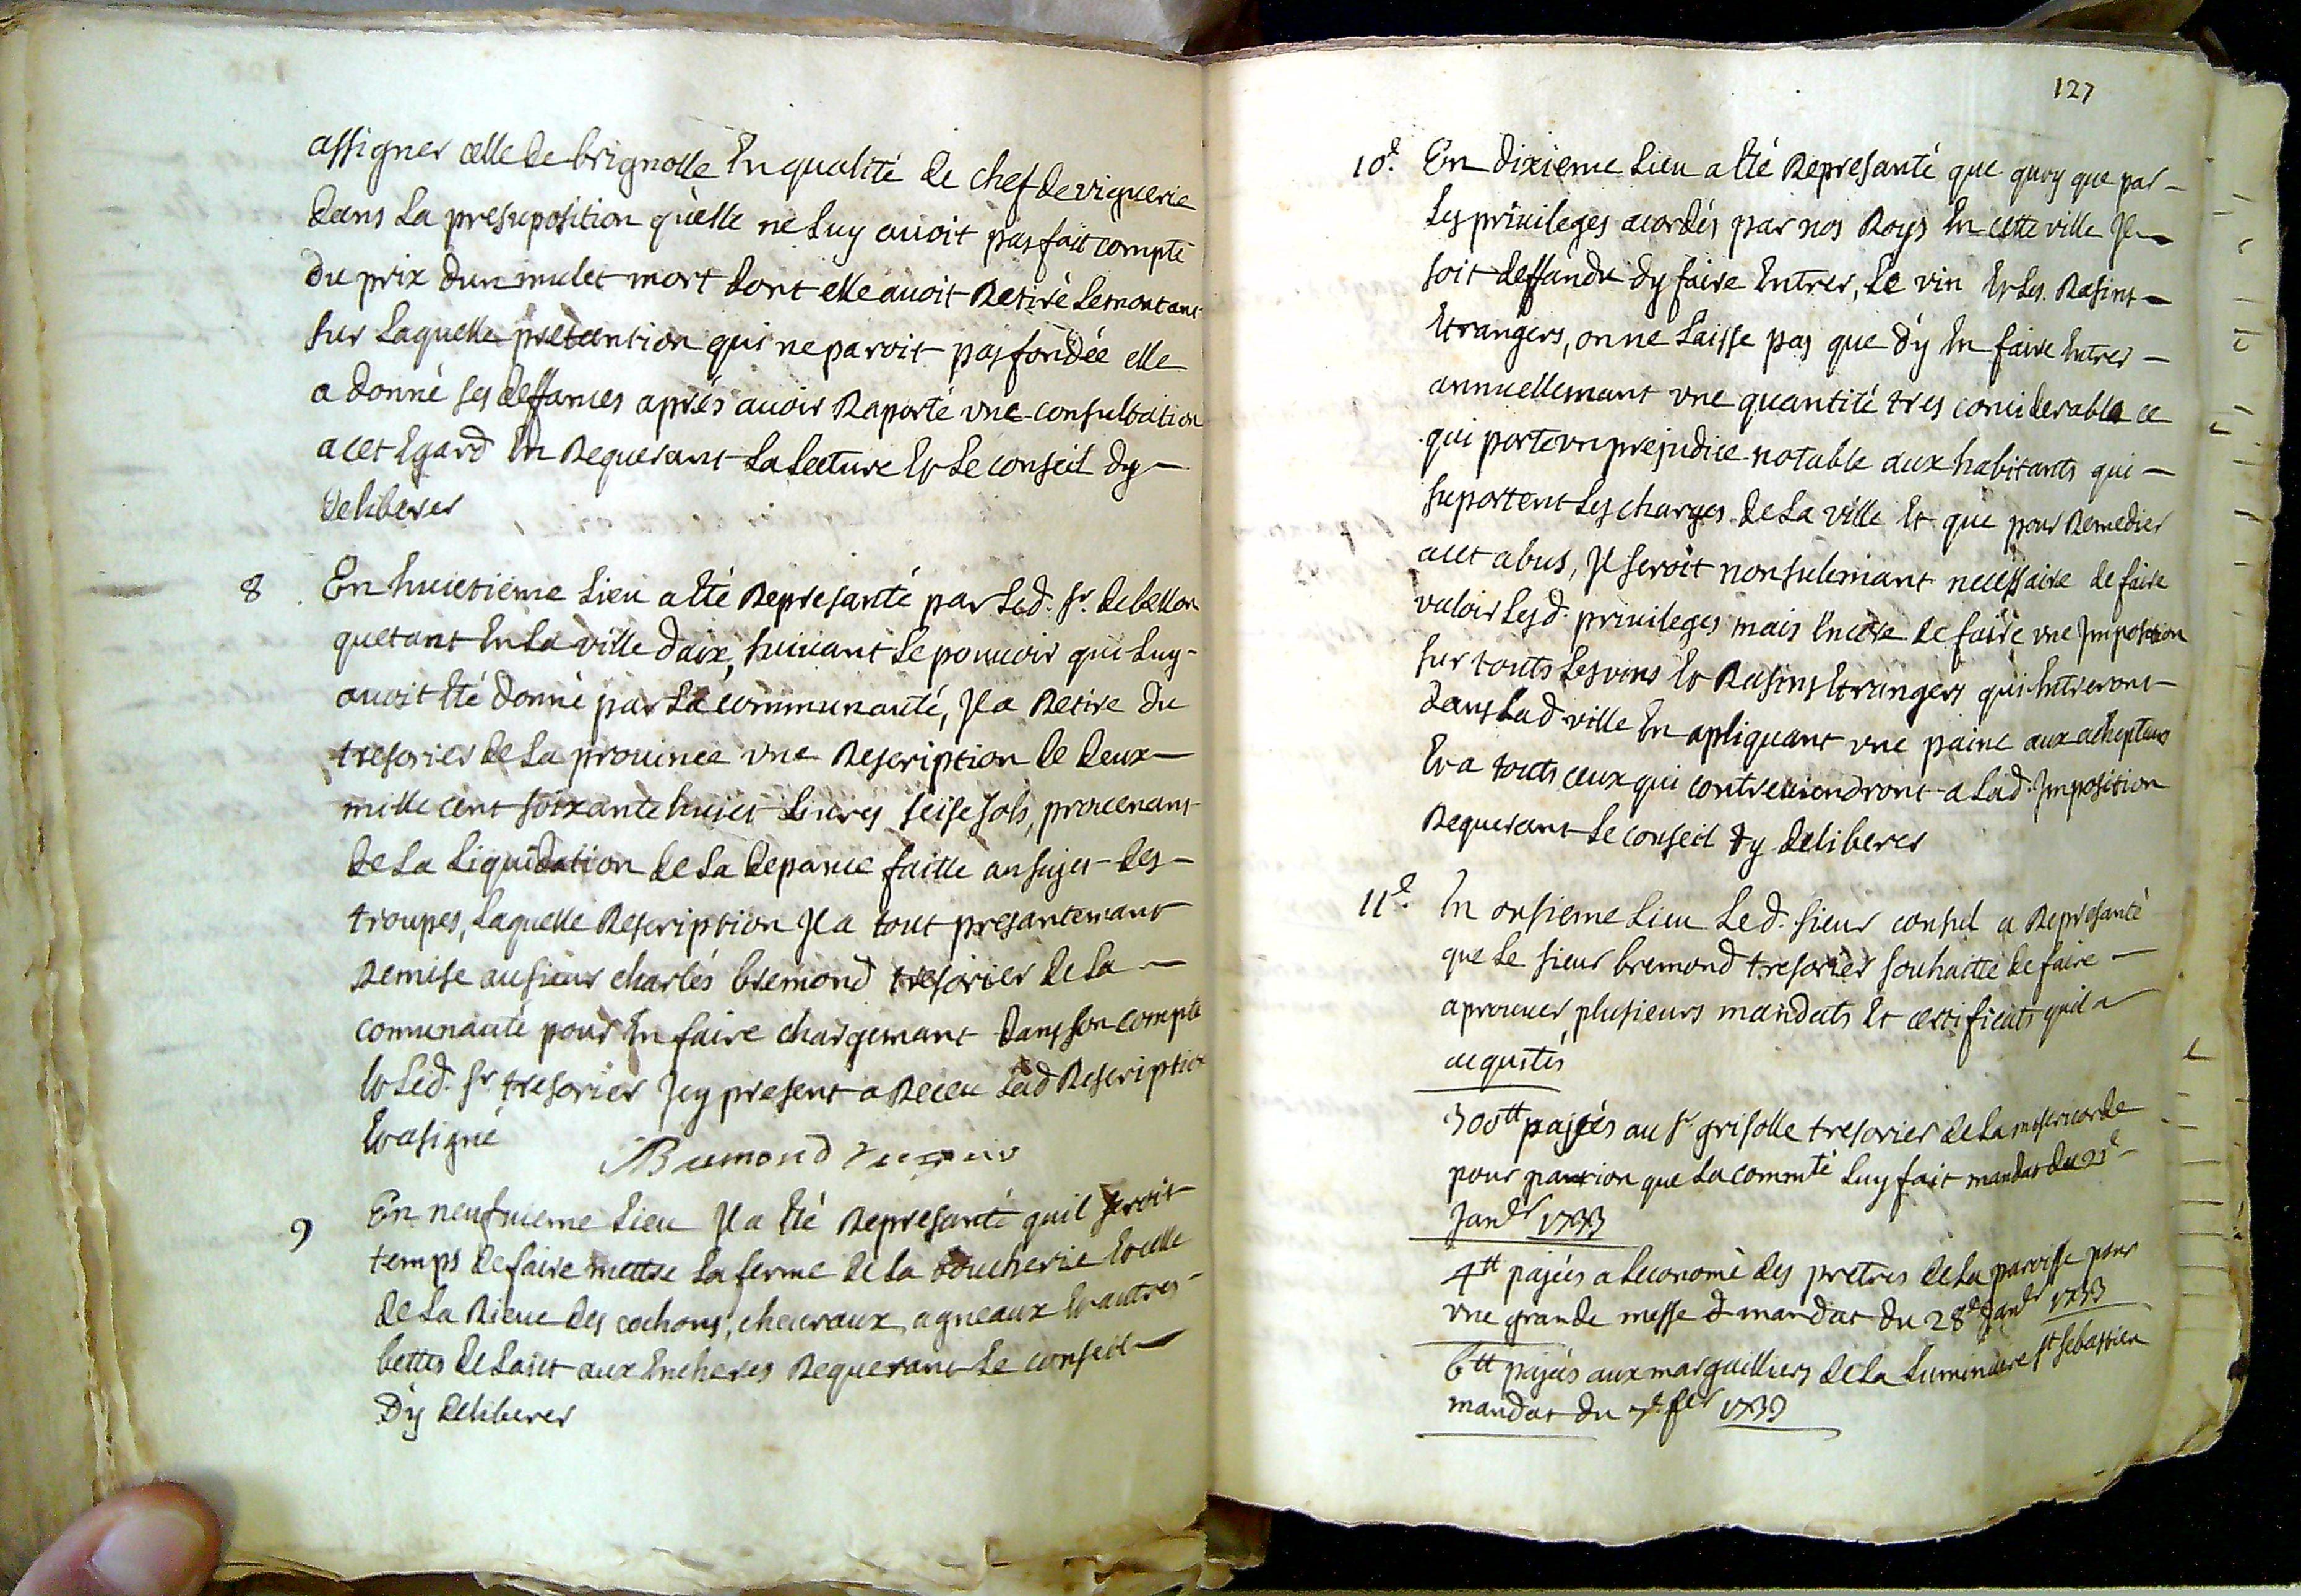 assigner celle de brignolle En qualité de chef de viguerie
dans La presuposition qu'elle ne Luy auoit pas fait compte
du prix dun mulet mort dont elle auoit Retiré Le montant
sur Laquelle pretantion qui ne paroit pas fondée elle
a donné ses deffances aprés auoir Raporté vne consultation
a cet Egard En Requerant La Lecture Et Le conseil dy
deliberer
8 En huictieme Lieu a Eté Represanté par Led. sr. de bellon
quetant En La ville daix, suiuant Le pouuoir qui Luy
auoit Eté donné par La communauté, Jl a Retire du
tresorier de La prouince vne Rescription de deux
mille cent soixante huict Liures seise sols, prouenant
de La Liquidation de La depance faitte au sujet des
troupes, Laquelle Rescription Jl a tout presantemant
Remise au sieur charles bremond tresorier de La
comunauté pour En faire chargemant dans son compte
Et Led. sr tresorier Jcy present a Receu Lad Rescription
Et a signé
Bremond
9 En neufuieme Lieu Jl a Eté Represanté quil seroit
temps de faire mettre La ferme de La boucherie Et celle
de La Rieue des cochons, cheuraux, agneaux Et autres
bettes de Laict aux Encheres Requerant Le conseil
D'y deliberer
127
10e. En dixieme Lieu a Eté Represanté que quoy que par
Les priuileges acordés par nos Roys En cette ville Jl
soit deffandu dy faire Entrer, Le vin Et Les Rasins
Etrangers, on ne Laisse pas que d'y En faire Entrer
annuellemant vne quantité tres considerable ce
qui porte vn prejudice notable aux habitants qui
suportent Les charges de La ville Et que pour Remedier
a cet abus, Jl seroit non sulemant necessaire de faire
valoir Lesd. priuileges mais Encore de faire vne Jmposition
sur touts Les vins Et Rasins Etrangers qui Entreront
dans Lad ville En apliquant vne paine aux achepteurs
Et a touts ceux qui contreuiendront a Lad. Jmposition
Requerant Le conseil d'y deliberer
11e. En onsieme Lieu Led. sieur consul a Represanté
que Le sieur bremond tresorier souhaitte de faire
aprouuer plusieurs mandats Et certificats quil a
acquités
300tt payées au sr grisolle tresorier de La misericorde
pour pantion que La commté Luy fait mandat du 21e
Janer 1733
4tt payées a Leconomé des pretres de La paroisse pour
vne grande messe mandat du 28e Janer 1733
6tt payées aux marguilliers de La Luminaire st sebastien
mandat du 7e fer 1733